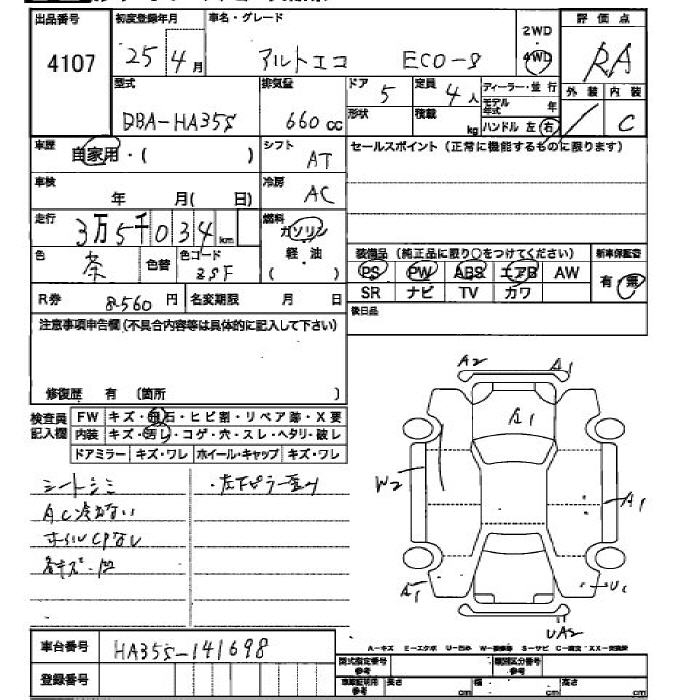 出品番号 初度登録年月 車名・グレード 評価点
4107 25年4月 アルトエコ ECO-S 2WD 4WD RA
型式 排気量 ドア 定員 ディーラー・並行 外装 内装
DBA-HA35S 660cc 5 4人 モデル年式 年 / C
形状 積載 kg ハンドル 左 右
車歴 自家用・( ) シフト AT セールスポイント(正常に機能するものに限ります)
車検 年 月( 日) 冷房 AC
走行 3万5千034km 燃料 ガソリン
軽油
( )
色 茶 色替 色コード ZSF
装備品(純正品に限り○をつけてください) 新車保証書
PS PW ABS エアB AW 有・無
SR ナビ TV カワ
R券 8560円 名変期限 月 日 後日品
注意事項申告欄(不具合内容等は具体的に記入して下さい)
修復歴 有 〔箇所 〕
検査員記入欄
FW キズ・飛石・ヒビ割・リペア跡・X要
内装 キズ・汚レ・コゲ・穴・スレ・ヘタリ・破レ
ドアミラー キズ・ワレ ホイール・キャップ キズ・ワレ
シートシミ
AC冷えない
ホイルCPなし
各キズ・凹
A2 A1
A1
W2 A1
A1 U1
UA2
A-キズ E-エクボ U-凹み W-補修跡 S-サビ C-腐食 X-要交換 XX-交換済
車台番号 HA35S-141698
登録番号
型式指定番号 参考 類別区分番号 参考
車庫証明用 参考 長さ cm 幅 cm 高さ cm